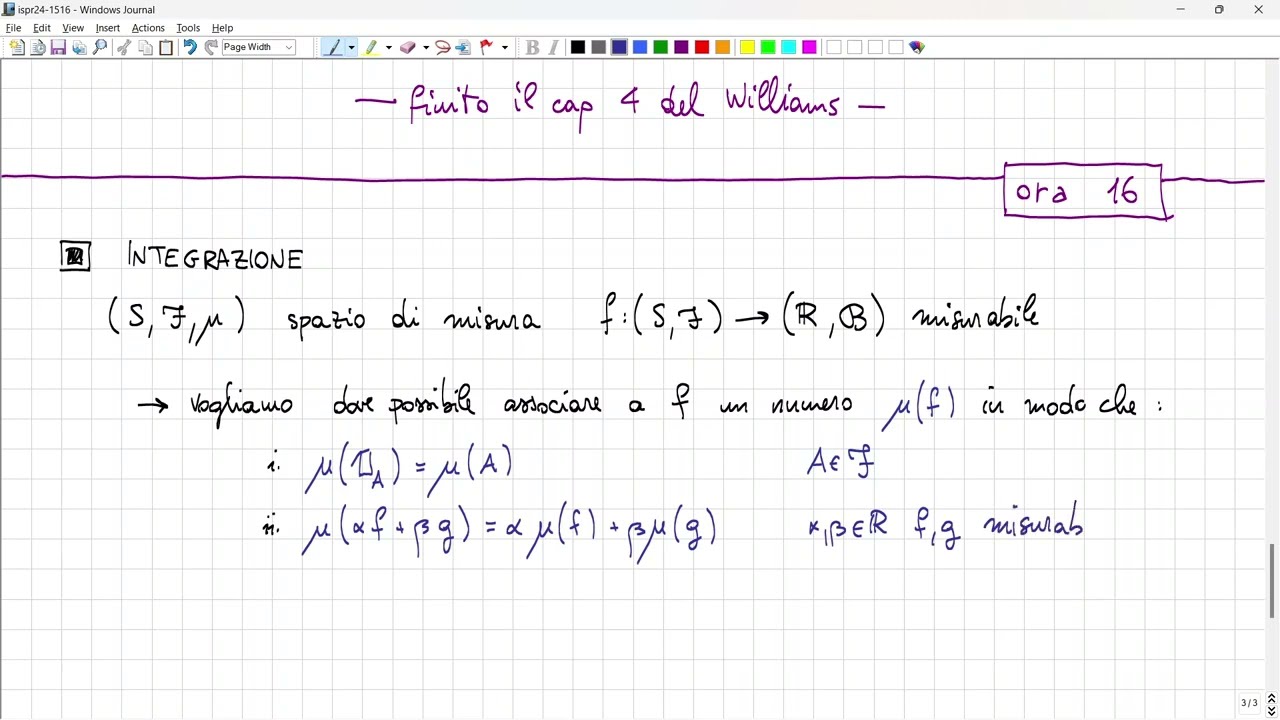 ispr24-1516 - Windows Journal
File Edit View Insert Actions Tools Help
Page Width
— finito il cap 4 del Williams —
ora 16
INTEGRAZIONE
(S, ℱ, μ) spazio di misura f: (S, ℱ) → (ℝ, ℬ) misurabile
→ vogliamo dove possibile associare a f un numero μ(f) in modo che :
i. μ(𝟙_A) = μ(A) A ∈ ℱ
ii. μ(αf + βg) = αμ(f) + βμ(g) α, β ∈ ℝ f, g misurab
3/3